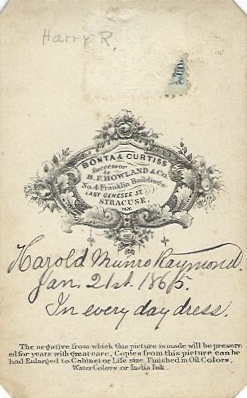 Harry R.
BONTA & CURTISS
Successor
to
B.F. HOWLAND & CO.
No. 4 Franklin Buildings
EAST GENESEE ST.
SYRACUSE.
N.Y.
Harold Munro Raymond.
Jan. 21st. 1865.
In every day dress.
The negative from which this picture is made will be preserv
ed for years with great care, Copies from this picture can be
had Enlarged to Cabinet or Life size. Finished in Oil Colors,
Water Colors or India Ink.